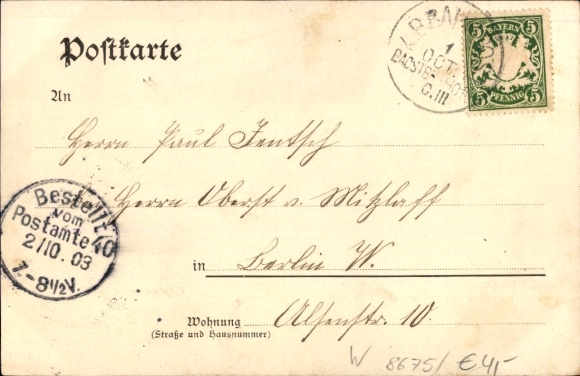 Postkarte
BAYERN
5 5
5 PFENNIG 5
1
OCT
C.III
An
Herrn Paul Jentsch
Herrn Oberst v. Mitzlaff
Bestellt
vom
Postamte 40
2/10.03
7-8½V.
in Berlin W.
Wohnung Alsenstr. 10.
(Straße und Hausnummer)
W 8675/ €4,-